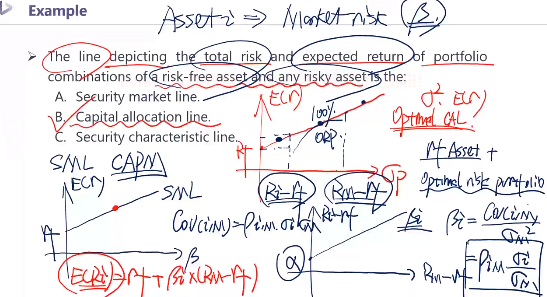 Example
Asset i ⇒ Market risk β.
The line depicting the total risk and expected return of portfolio
combinations of a risk-free asset and any risky asset is the:
A. Security market line.
B. Capital allocation line.
C. Security characteristic line.
E(r)
100%
ORP
Rf
σp
σ². E(r)
Optimal CAL.
rf Asset +
Optimal risk portfolio
SML CAPM
E(r)
SML
rf
β
E(Ri) = rf + βi × (RM - rf)
Ri - rf
RM - rf
Cov(i,M) = ρi,M σi σM
Ri - rf
α
βi
RM - rf
βi = Cov(i,M) / σM²
= ρi,M σi / σM